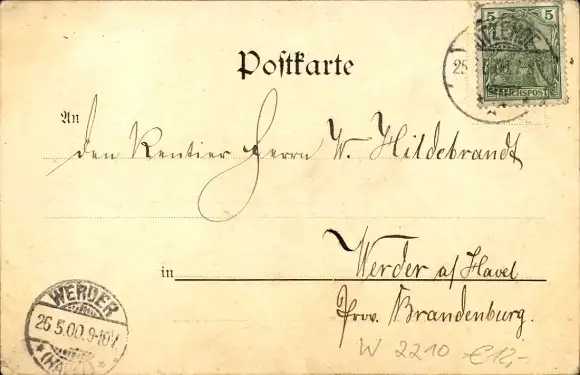 Postkarte
5 5
REICHSPOST
25. 5.00
An
den Rentier Herrn W. Hildebrandt
in Werder a/Havel
Prov. Brandenburg.
WERDER
26.5.00.9-10V.
(HAVEL)
W 2210 €12,-